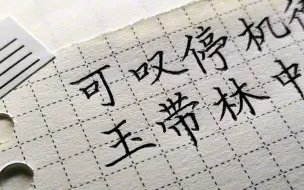 可叹停机
玉带林中